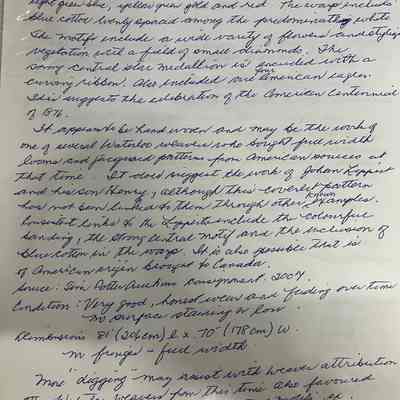 kept green blue, yellow green gold and red. The warp includes
blue cotton evenly spaced among the predominately white
The motifs include a wide variety of flowers and stylized
vegetation with a field of small diamonds. The
strong central star medallion is encircled with a
curving ribbon. Also included are four American eagles.
This suggests the celebration of the American Centennial
of 1876.
It appears to be hand woven and may be the work of
one of several Waterloo weavers who bought full width
looms and jacquard patterns from American sources at
that time. It does suggest the work of Johan Lippert
and his son Henry, although this coverlet pattern
has not been linked to them through other known examples.
Consistent links to the Lipperts include the colourful
banding, the strong central motif and the inclusion of
blue cotton in the warp. It is also possible that is
of American origin brought to Canada.
Source: Tim Potter Auctions consignment. 2004.
Condition: Very good, honest wear and fading over time
no surface staining or loss
Dimensions 81" (206cm) l x 70" (178cm) w.
no fringe - full width
More "digging" may assist with weaver attribution
weavers from this time also favoured